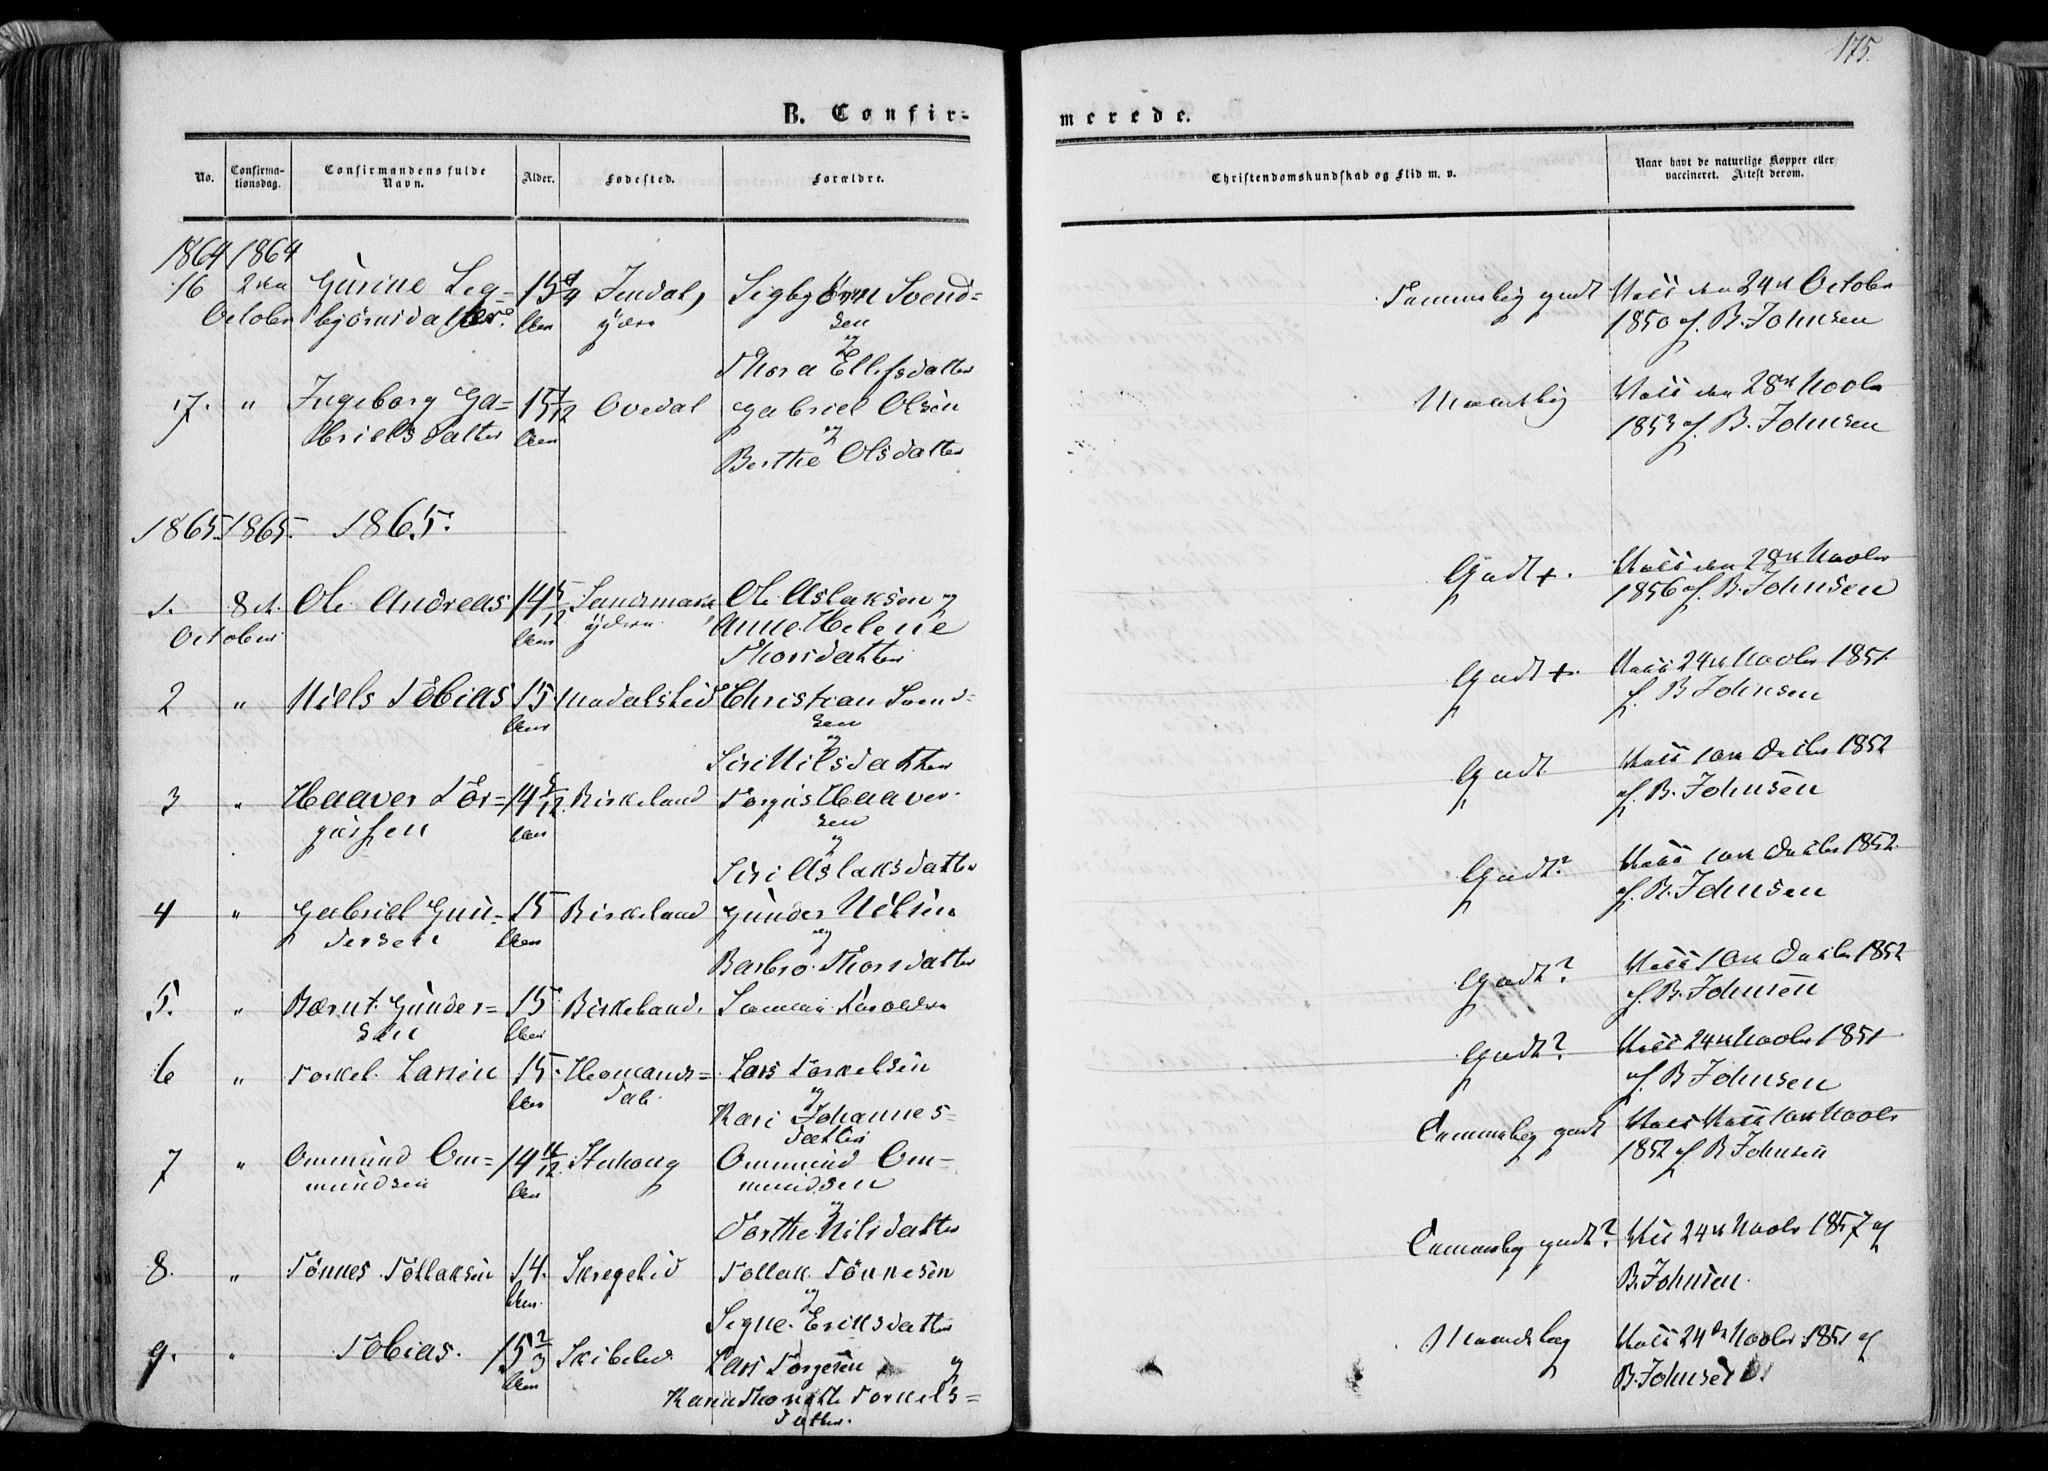 175.
B. Confir-
merede.
No.
Confirma-
tionsdag.
Confirmandens fulde
Navn.
Alder.
Fødested.
Forældre.
Christendomskundskab og Flid m. v.
Naar havt de naturlige Kopper eller
vaccineret. Attest derom.
1864 1864
16 2den Gurine Sig- 15 1/4 Jendal, Sigbjörn Svend-
October björnsdatter. ydre sen
og
Thora Ellefsdatter
Temmelig godt Vacc den 24de Octobr
1850 af B. Johnsen
17. " Ingeborg Ga- 15 1/12 Ovedal Gabriel Olsen
brielsdatter og
Berthe Olsdatter
Maadelig Vacc den 28de Novbr
1853 af B. Johnsen
1865. 1865. 1865.
1. 8de Ole Andreas 14 5/12 Sandsmark Ole Aslaksen og
October ydre Anne Helene
Thorsdatter
Godt +. Vacc den 28de Novbr
1856 af B. Johnsen
2 " Niels Tobias 15 Christian Svend-
sen
og
Siri Nilsdatter
Godt +. Vacc 24de Novbr 1851
af B Johnsen
3 " Haaver Tör- 14 Birkeland Torgus Haaver-
gussen sen
og
Siri Aslaksdatter
Godt Vacc 10de Decbr 1852
af B. Johnsen
4 " Gabriel Gun- 15 Birkeland Gunder Nilsen
dersen og
Barbro Thorsdatter
Godt? Vacc 10de Decbr 1852
af B. Johnsen
5. " Bærnt Gunder- 15 Birkeland. Samme Forældre
sen
Godt? Vacc 10de Decbr 1852
af B. Johnsen
6 " Torkel Larsen 15. Homands- Lars Torkelsen
dal. og
Kari Johannes-
datter
Godt? Vacc 24de Novbr 1851
af B Johnsen
7 " Ommund Om- 14 Ommund Om-
mundsen mundsen
og
Dorthe Nilsdatter
Temmelig godt Vacc 10de Novbr
1852 af B Johnsen
8. " Tönnes Tollaksen 14. Skregelid Tollak Tönnesen
og
Signe Eriksdatter
Temmelig godt? Vacc 24de Novbr 1857 af
B. Johnsen.
9. " Tobias. 15 2/3 Skibelid Lars Torgersen og
Torkels-
datter.
Maadelig Vacc 24de Novbr 1851 af
B. Johnsen